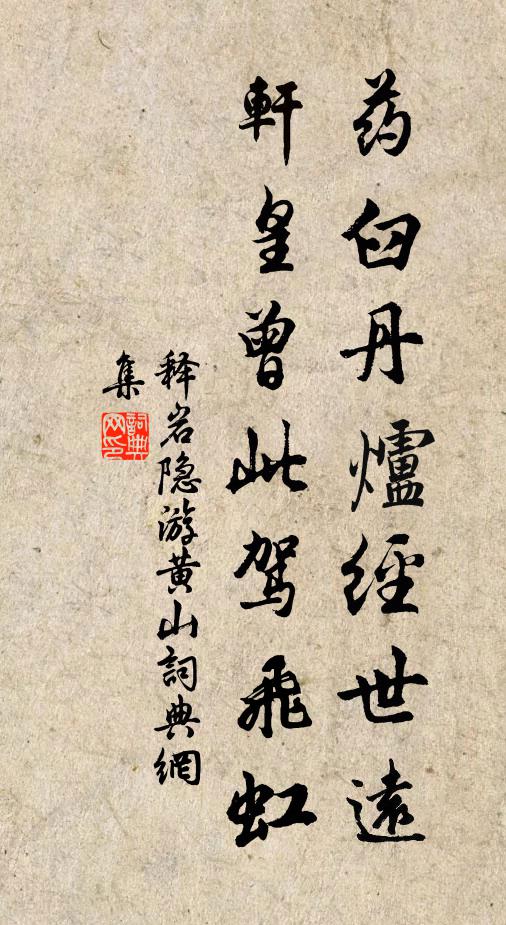 药臼丹爐經世遠
軒皇曾此駕飛虹
释岩隐游黄山詞典網
集
詞典
网印